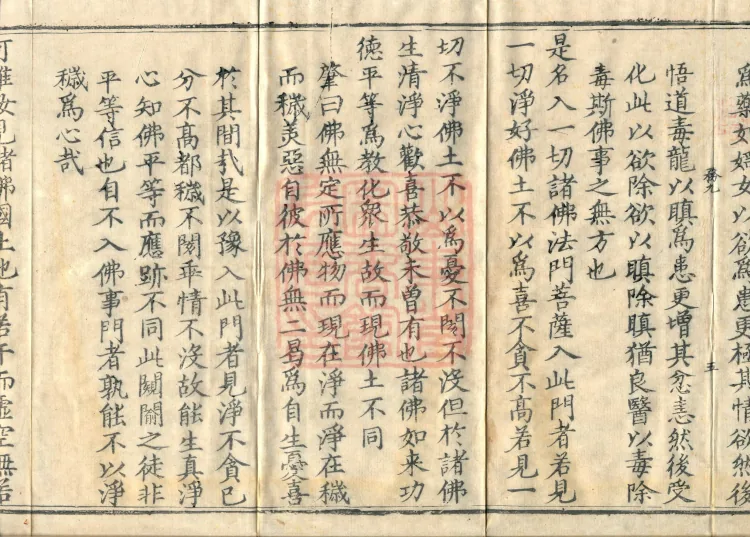 爲藥如婬女以欲爲患更極其情欲然後
五
悟道毒龍以瞋爲患更增其忿恚然後受
化此以欲除欲以瞋除瞋猶良醫以毒除
毒斯佛事之無方也
是名入一切諸佛法門菩薩入此門者若見
一切淨好佛土不以爲喜不貪不高若見一
切不淨佛土不以爲憂不閡不没但於諸佛
生清淨心歡喜恭敬未曾有也諸佛如來功
德平等爲教化衆生故而現佛土不同
肇曰佛無定所應物而現在淨而淨在穢
而穢美惡自彼於佛無二曷爲自生憂喜
於其間哉是以豫入此門者見淨不貪已
分不高都穢不閡乖情不没故能生真淨
心知佛平等而應跡不同此闚𨵦之徒非
平等信也自不入佛事門者孰能不以淨
穢爲心哉
阿難汝見諸佛國土地有若干而虛空無若